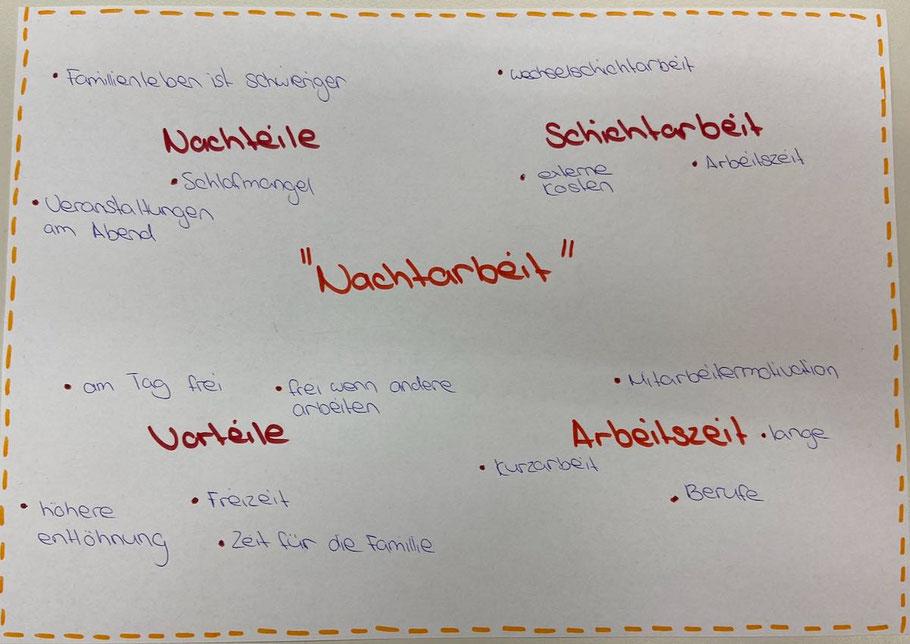 • Familienleben ist schwieriger
Nachteile
• Schlafmangel
• Veranstaltungen
am Abend
• Wechselschichtarbeit
Schichtarbeit
• externe
Kosten
• Arbeitszeit
"Nachtarbeit"
• am Tag frei
• frei wenn andere
arbeiten
Vorteile
• höhere
entlöhnung
• Freizeit
• Zeit für die Familie
• Mitarbeitermotivation
Arbeitszeit • lange
• Kurzarbeit
• Berufe